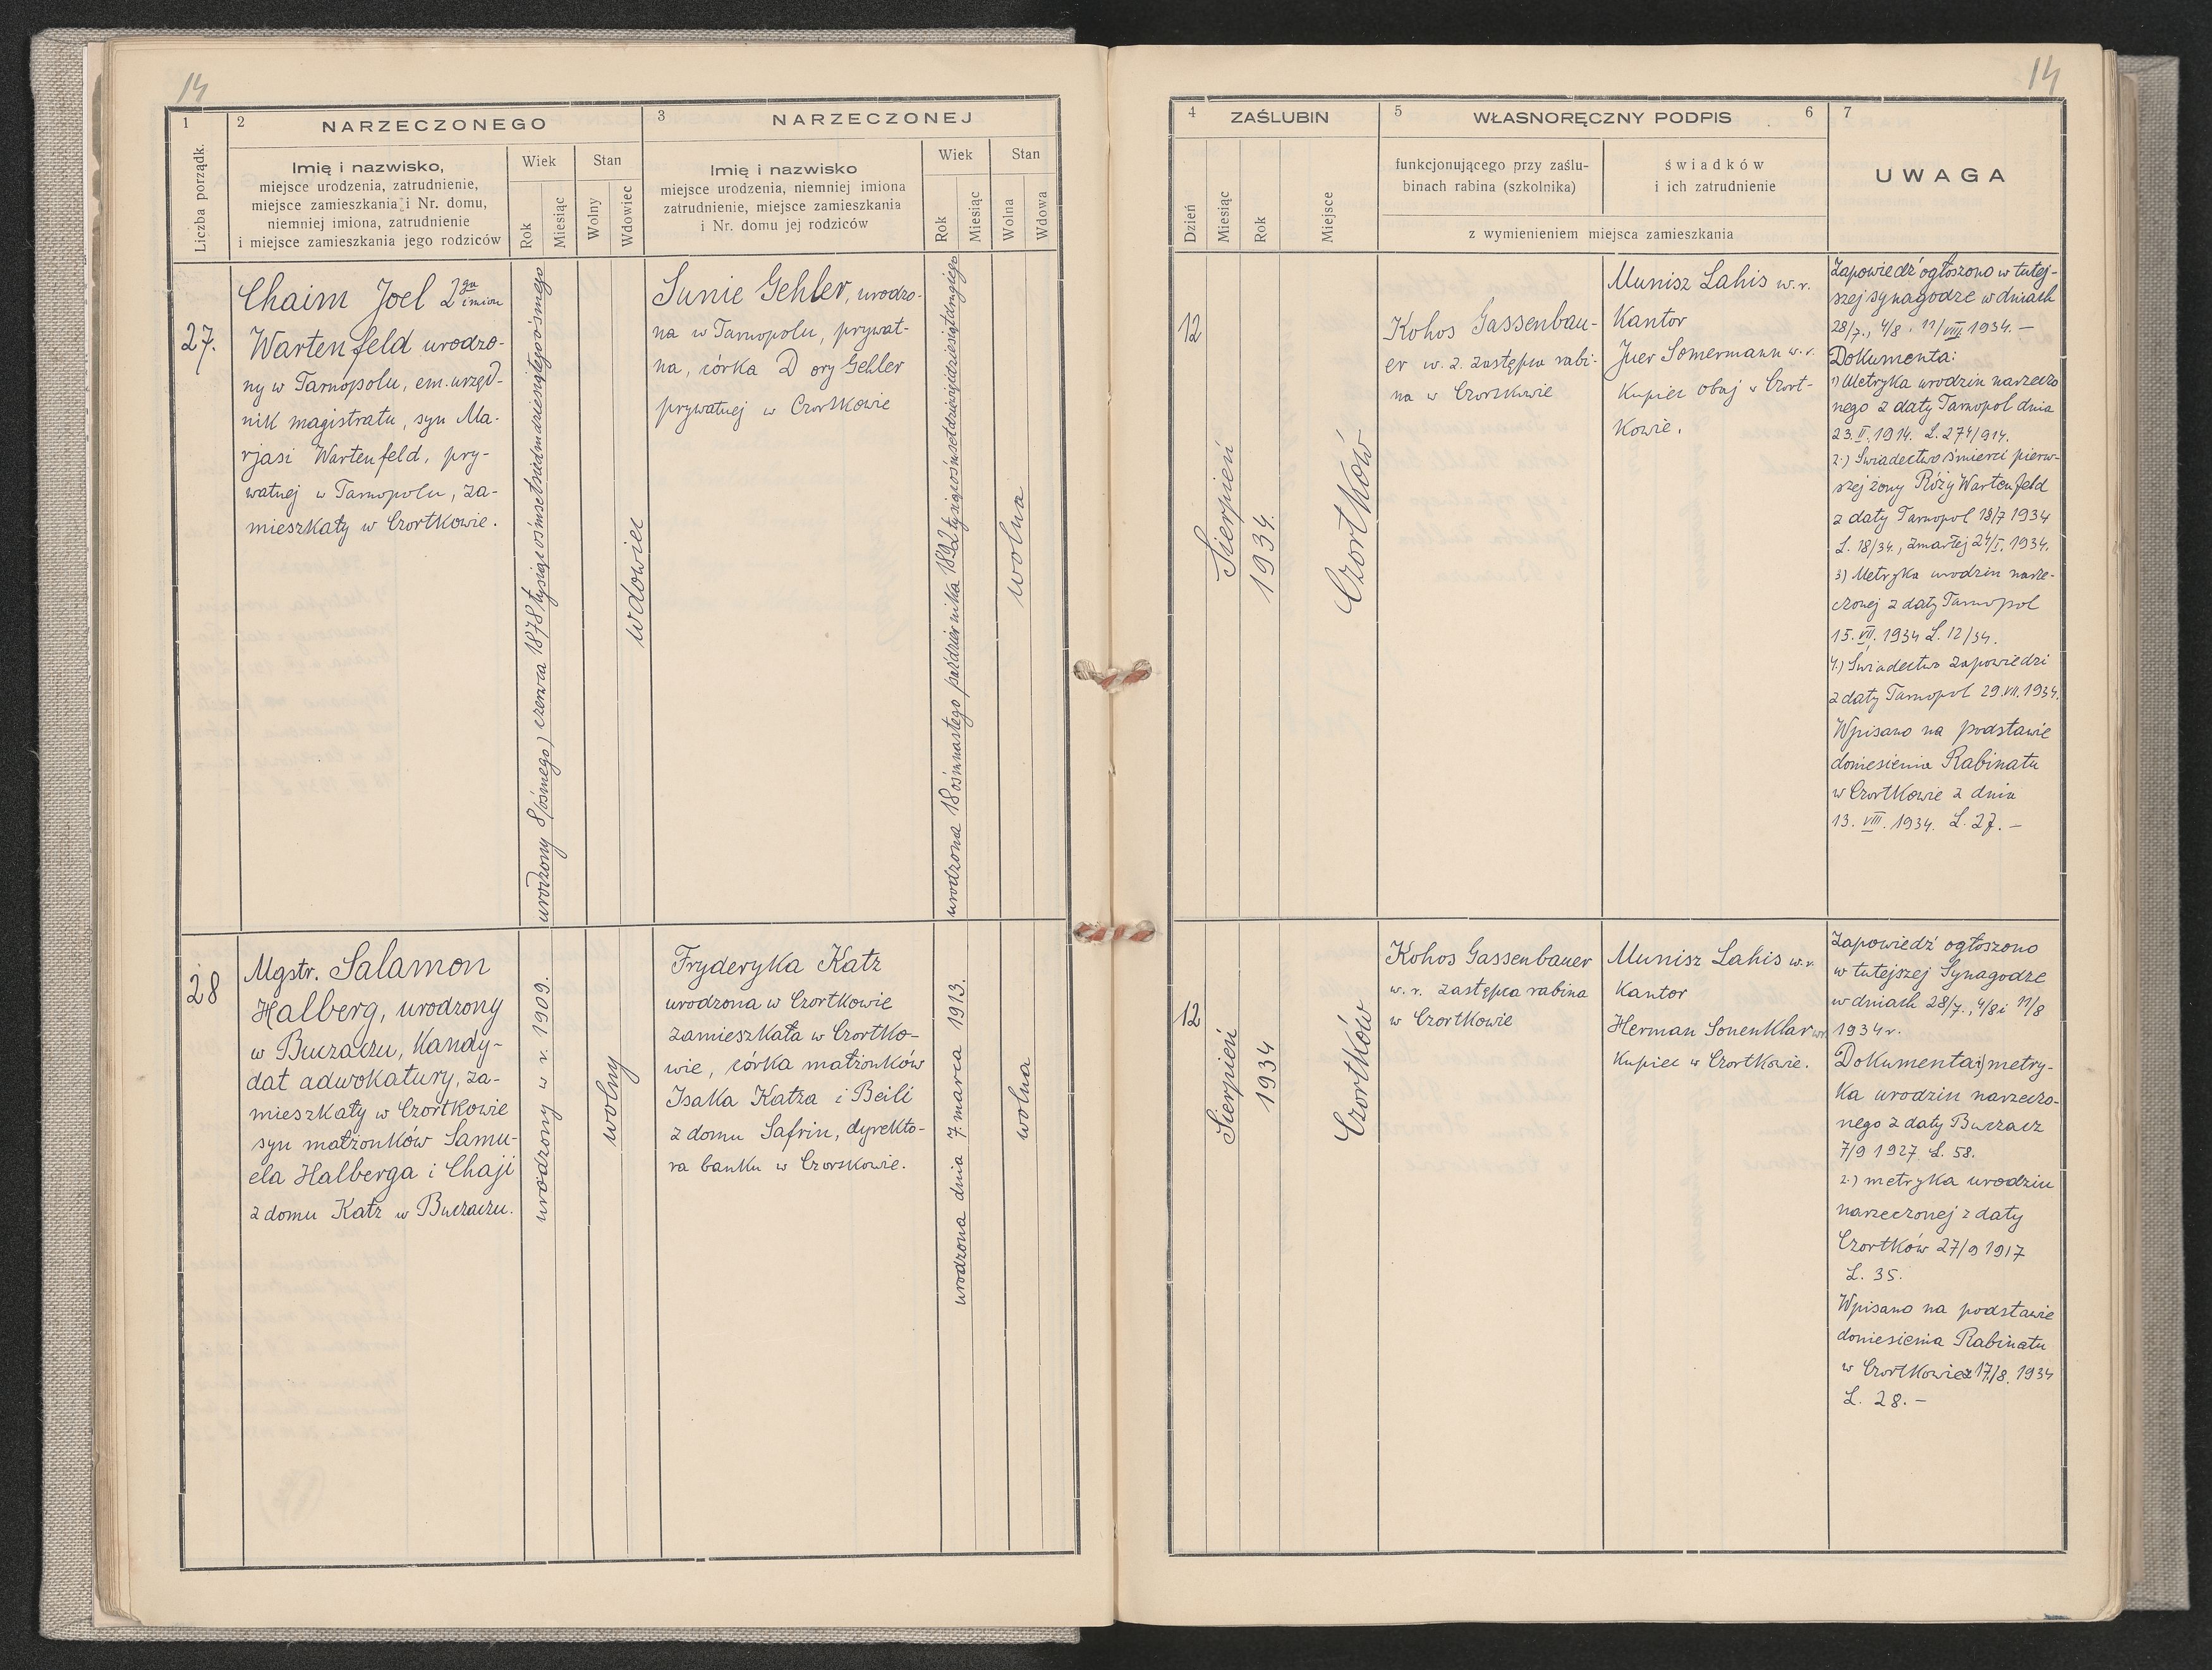 14
1
2
NARZECZONEGO
3
NARZECZONEJ
Liczba porządk.
Imię i nazwisko,
miejsce urodzenia, zatrudnienie,
miejsce zamieszkania i Nr. domu,
niemniej imiona, zatrudnienie
i miejsce zamieszkania jego rodziców
Wiek
Rok
Miesiąc
Stan
Wolny
Wdowiec
Imię i nazwisko
miejsce urodzenia, niemniej imiona
zatrudnienie, miejsce zamieszkania
i Nr. domu jej rodziców
Wiek
Rok
Miesiąc
Stan
Wolna
Wdowa
27.
Chaim Joel 2ga imion
Wartenfeld urodzo-
ny w Tarnopolu, em. urzęd-
nik magistratu, syn Ma-
rjasi Wartenfeld, pry-
watnej w Tarnopolu, za-
mieszkały w Czortkowie.
urodzony 8/ósmego) czerwca 1878 tysiąc ośmset siedmdziesiątego ósmego
wdowiec
Sunie Gehler, urodzo-
na w Tarnopolu, prywat-
na, córka Dory Gehler
prywatnej w Czortkowie
urodzona 18 ośmnastego października 1892 tysiąc ośmset dziewięćdziesiąt drugiego
wolna
28
Mgstr. Salamon
Halberg, urodzony
w Buczaczu, Kandy-
dat adwokatury, za-
mieszkały w Czortkowie
syn małżonków Samu-
ela Halberga i Chaji
z domu Katz w Buczaczu.
urodzony w r. 1909.
wolny
Fryderyka Katz
urodzona w Czortkowie
zamieszkała w Czortko-
wie, córka małżonków
Isaka Katza i Beili
z domu Safrin, dyrekto-
ra banku w Czortkowie.
urodzona dnia 7. marca 1913.
wolna
14
4
ZAŚLUBIN
5
WŁASNORĘCZNY PODPIS
6
7
Dzień
Miesiąc
Rok
Miejsce
funkcjonującego przy zaślu-
binach rabina (szkolnika)
świadków
i ich zatrudnienie
z wymienieniem miejsca zamieszkania
UWAGA
12
Sierpień
1934.
Czortków
Kohos Gassenbau-
er w. r. zastępca rabi-
na w Czortkowie
Munisz Lahis w. r.
Kantor
Juer Somermann w. r.
Kupiec obaj w Czort-
kowie.
Zapowiedź ogłoszono w tutej-
szej synagodze w dniach
28/7., 4/8. 11/VIII 1934. —
Dokumenta:
1) Metryka urodzin narzeczo
nego z daty Tarnopol dnia
23. II. 1914. L. 274/914.
2.) Świadectwo śmierci pierw-
szej żony Róży Wartenfeld
z daty Tarnopol 18/7 1934
L. 18/34., zmarłej 24/I. 1934.
3) Metryka urodzin narze-
czonej z daty Tarnopol
15. VII. 1934 L. 12/34.
4.) Świadectwo zapowiedzi
z daty Tarnopol 29. VII. 1934.
Wpisano na podstawie
doniesienia Rabinatu
w Czortkowie z dnia
13. VIII. 1934. L. 27. —
12
Sierpień
1934
Czortków
Kohos Gassenbauer
w. r. zastępca rabina
w Czortkowie
Munisz Lahis w. r.
Kantor
Herman Sonenklar wr.
Kupiec w Czortkowie.
Zapowiedź ogłoszono
w tutejszej Synagodze
w dniach 28/7., 4/8 i 11/8
1934 r.
Dokumenta: 1) metry-
ka urodzin narzeczo-
nego z daty Buczacz
7/9 1927 L. 58.
2.) metryka urodzin
narzeczonej z daty
Czortków 27/9 1917
L. 35.
Wpisano na podstawie
doniesienia Rabinatu
w Czortkowie z 17/8. 1934
L. 28. —